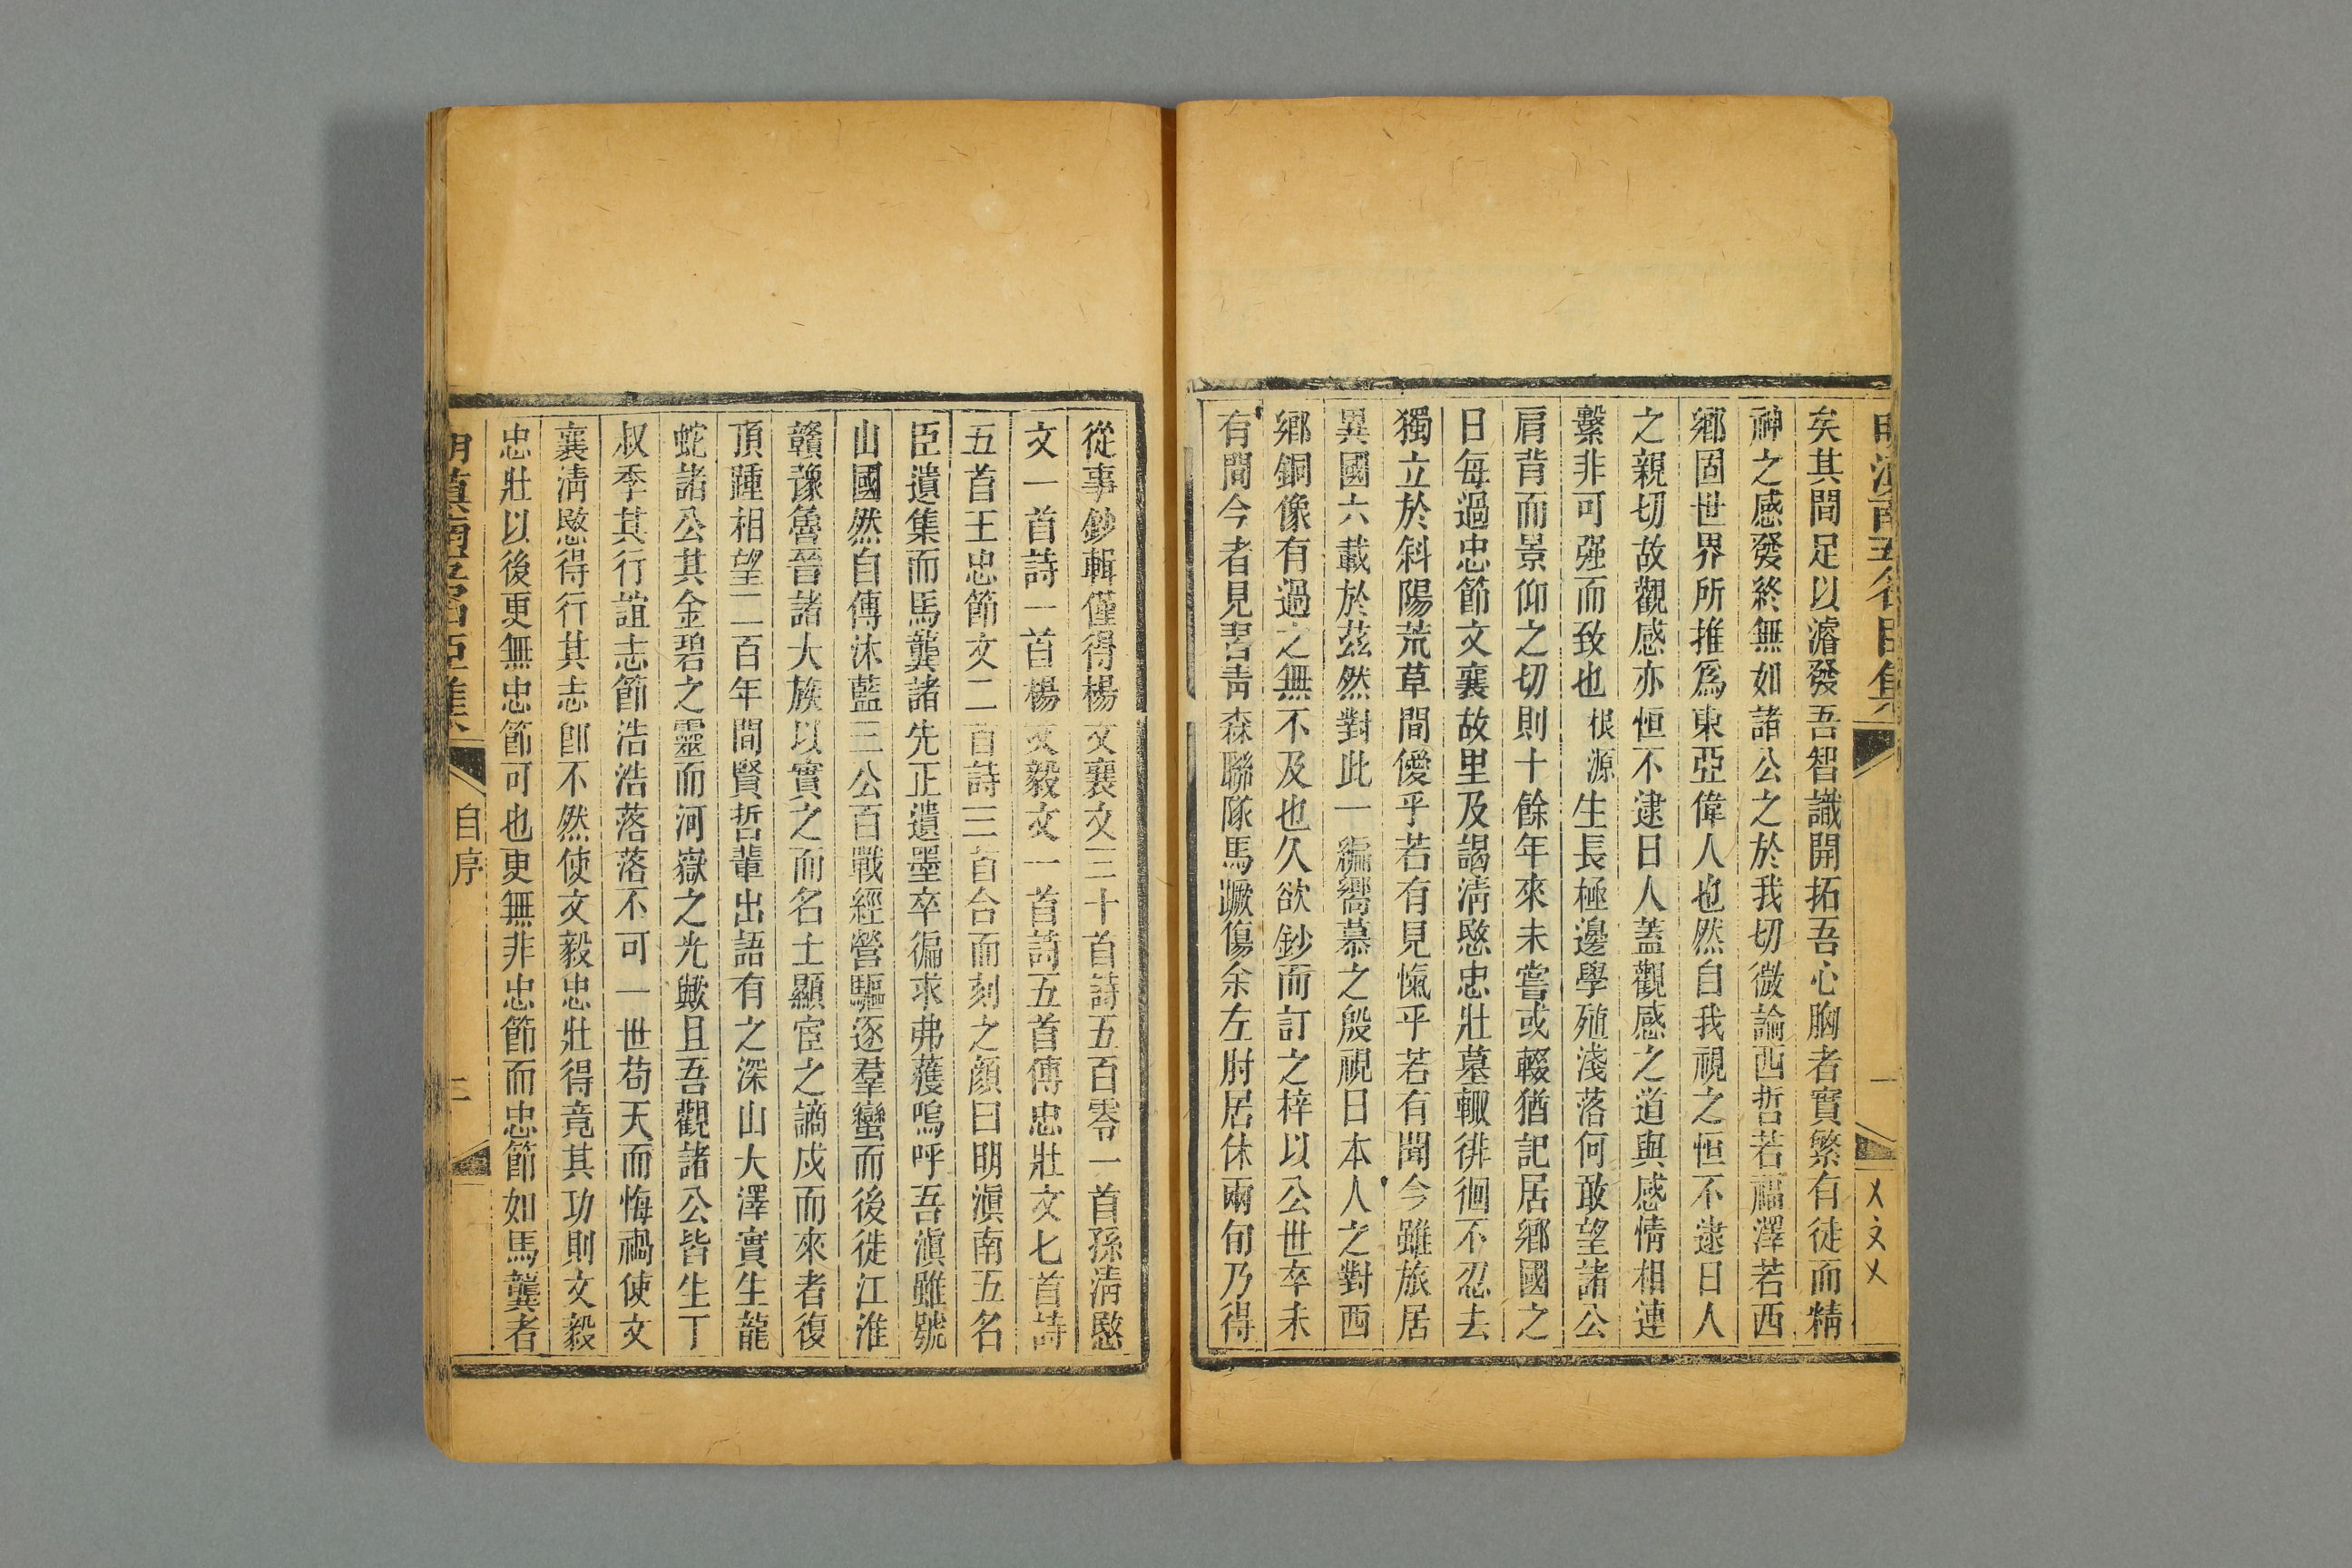 明滇南五名臣集
一
乂文乂
矣其間足以濬發吾智識開拓吾心胸者實繁有徒而精
神之感發終無如諸公之於我切微論西哲若福澤若西
鄉固世界所推爲東亞偉人也然自我視之恒不逮日人
之親切故觀感亦恒不逮日人蓋觀感之道與感情相連
繫非可强而致也根源生長極邊學殖淺落何敢望諸公
肩背而景仰之切則十餘年來未嘗或輟猶記居鄉國之
日每過忠節文襄故里及謁淸愍忠壯墓輒徘徊不忍去
獨立於斜陽荒草間僾乎若有見愾乎若有聞今雖旅居
異國六載於茲然對此一編嚮慕之殷視日本人之對西
鄉銅像有過之無不及也久欲鈔而訂之梓以公世卒未
有間今者見習靑森聯隊馬蹶傷余左肘居休兩旬乃得
從事鈔輯僅得楊文襄文三十首詩五百零一首孫淸愍
文一首詩一首楊文毅文一首詩五首傅忠壯文七首詩
五首王忠節文二首詩三首合而刻之顔曰明滇南五名
臣遺集而馬龔諸先正遺墨卒徧求弗獲嗚呼吾滇雖號
山國然自傅沐藍三公百戰經營驅逐羣蠻而後徙江淮
贛豫魯晉諸大族以實之而名士顯宦之謫戍而來者復
頂踵相望二百年間賢哲輩出語有之深山大澤實生龍
蛇諸公其金碧之靈而河嶽之光歟且吾觀諸公皆生丁
叔季其行誼志節浩浩落落不可一世苟天而悔禍使文
襄淸愍得行其志卽不然使文毅忠壯得竟其功則文毅
忠壯以後更無忠節可也更無非忠節而忠節如馬龔者
明滇南五名臣集
自序
二